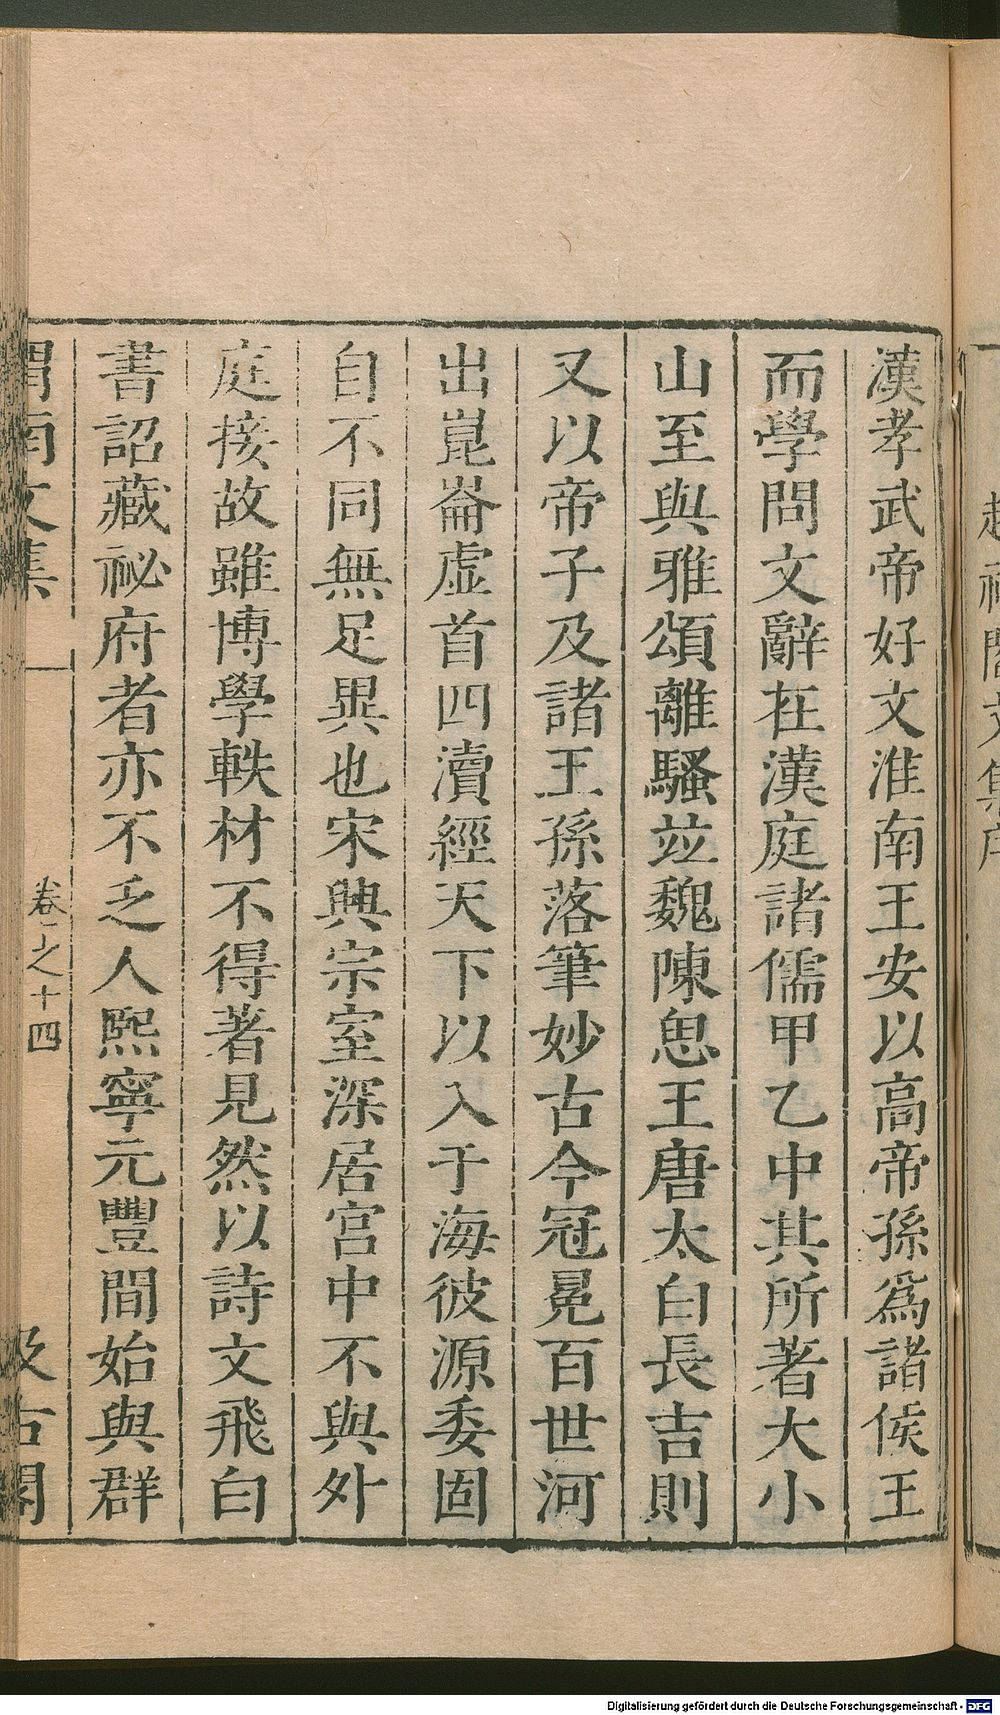 趙祕閣文集序
漢孝武帝好文淮南王安以高帝孫爲諸侯王
而學問文辭在漢庭諸儒甲乙中其所著大小
山至與雅頌離騷竝魏陳思王唐太白長吉則
又以帝子及諸王孫落筆妙古今冠冕百世河
出崑崙虛首四瀆經天下以入于海彼源委固
自不同無足異也宋興宗室深居宮中不與外
庭接故雖博學軼材不得著見然以詩文飛白
書詔藏祕府者亦不乏人熙寧元豐間始與群
渭南文集
卷之十四
汲古閣
Digitalisierung gefördert durch die Deutsche Forschungsgemeinschaft - DFG